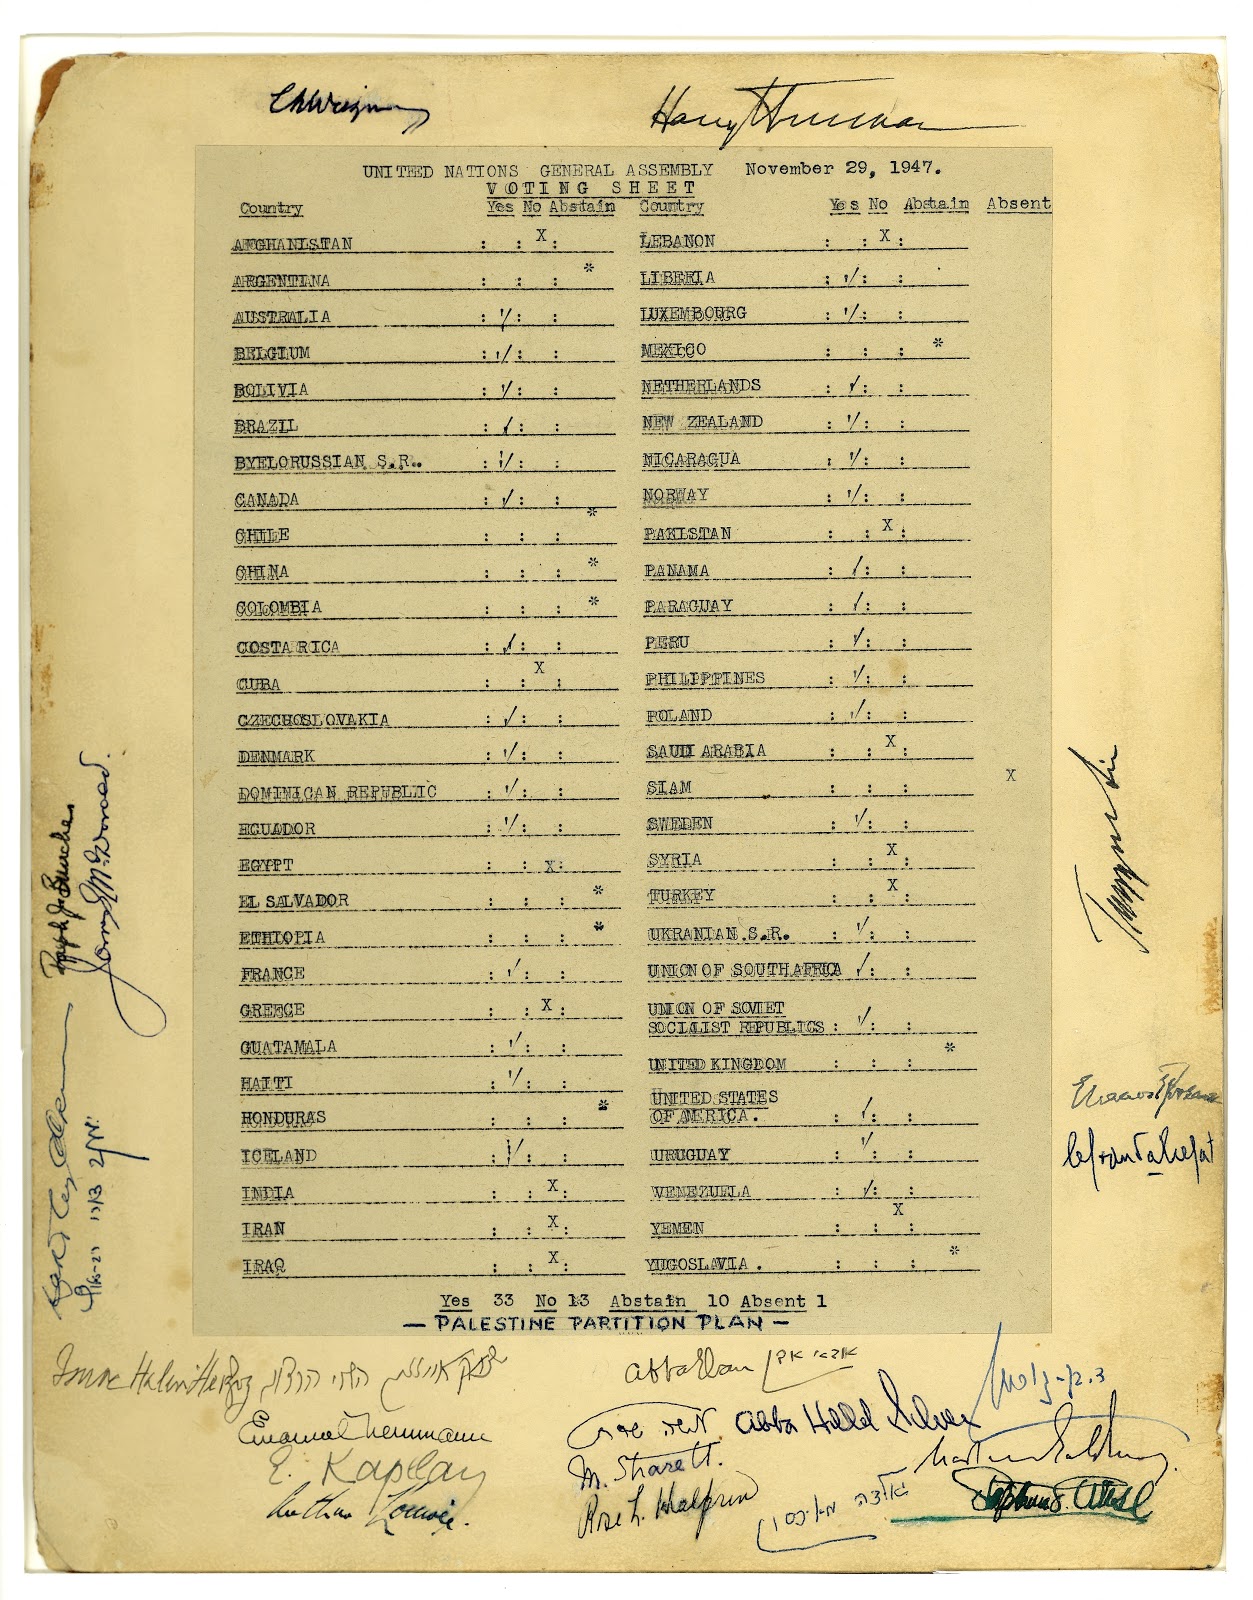 Harry Truman
UNITED NATIONS GENERAL ASSEMBLY November 29, 1947.
VOTING SHEET
Country Yes No Abstain Country Yes No Abstain Absent
AFGHANISTAN : : X : LEBANON : : X :
ARGENTINA : : : * LIBERIA : √ : :
AUSTRALIA : √ : : LUXEMBOURG : √ : :
BELGIUM : √ : : MEXICO : : : *
BOLIVIA : √ : : NETHERLANDS : √ : :
BRAZIL : √ : : NEW ZEALAND : √ : :
BYELORUSSIAN S.R.. : √ : : NICARAGUA : √ : :
CANADA : √ : : NORWAY : √ : :
CHILE : : : * PAKISTAN : : X :
CHINA : : : * PANAMA : √ : :
COLOMBIA : : : * PARAGUAY : √ : :
COSTA RICA : √ : : PERU : √ : :
CUBA : : X : PHILIPPINES : √ : :
CZECHOSLOVAKIA : √ : : POLAND : √ : :
DENMARK : √ : : SAUDI ARABIA : : X :
DOMINICAN REPUBLIC : √ : : SIAM : : : X
ECUADOR : √ : : SWEDEN : √ : :
EGYPT : : X : SYRIA : : X :
EL SALVADOR : : : * TURKEY : : X :
ETHIOPIA : : : * UKRANIAN S.R. : √ : :
FRANCE : √ : : UNION OF SOUTH AFRICA √ : :
GREECE : : X : UNION OF SOVIET
SOCIALIST REPUBLICS : √ : :
GUATAMALA : √ : : UNITED KINGDOM : : : *
HAITI : √ : : UNITED STATES
OF AMERICA. √ : :
HONDURAS : : : * URUGUAY : √ : :
ICELAND : √ : : VENEZUELA : √ : :
INDIA : : X : YEMEN : : X :
IRAN : : X : YUGOSLAVIA . : : : *
IRAQ : : X :
Yes 33 No 13 Abstain 10 Absent 1
— PALESTINE PARTITION PLAN —
Ralph J. Bunche
James G. McDonald.
Trygve Lie
Abba Eban אבא אבן
Abba Hillel Silver
Emanuel Neumann
משה שרת
E. Kaplan
M. Sharett.
Rose L. Halprin
Stephen S. Wise